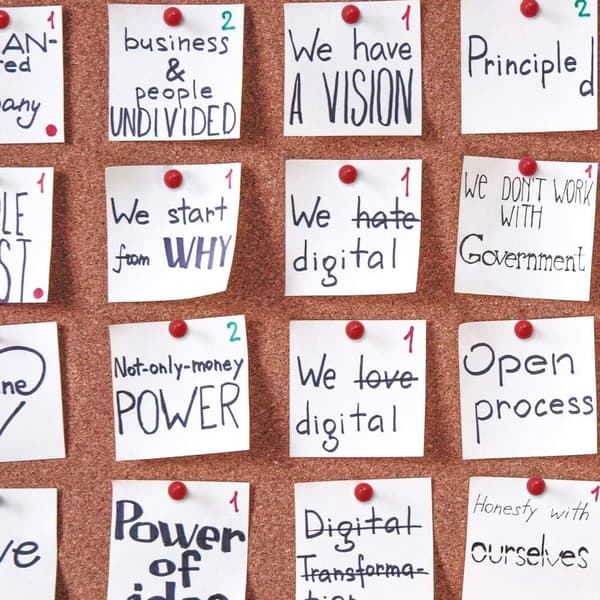 1
AN-
red
any
2
business
&
people
UNDIVIDED
1
We have
A VISION
2
Principled
1
LE
ST
1
We start
from WHY
1
We hate
digital
1
WE DON'T WORK
WITH
Government
ne
2
Not-only-money
POWER
1
We love
digital
Open
process
ve
1
Power
of
Digital
Transforma-
1
Honesty with
ourselves